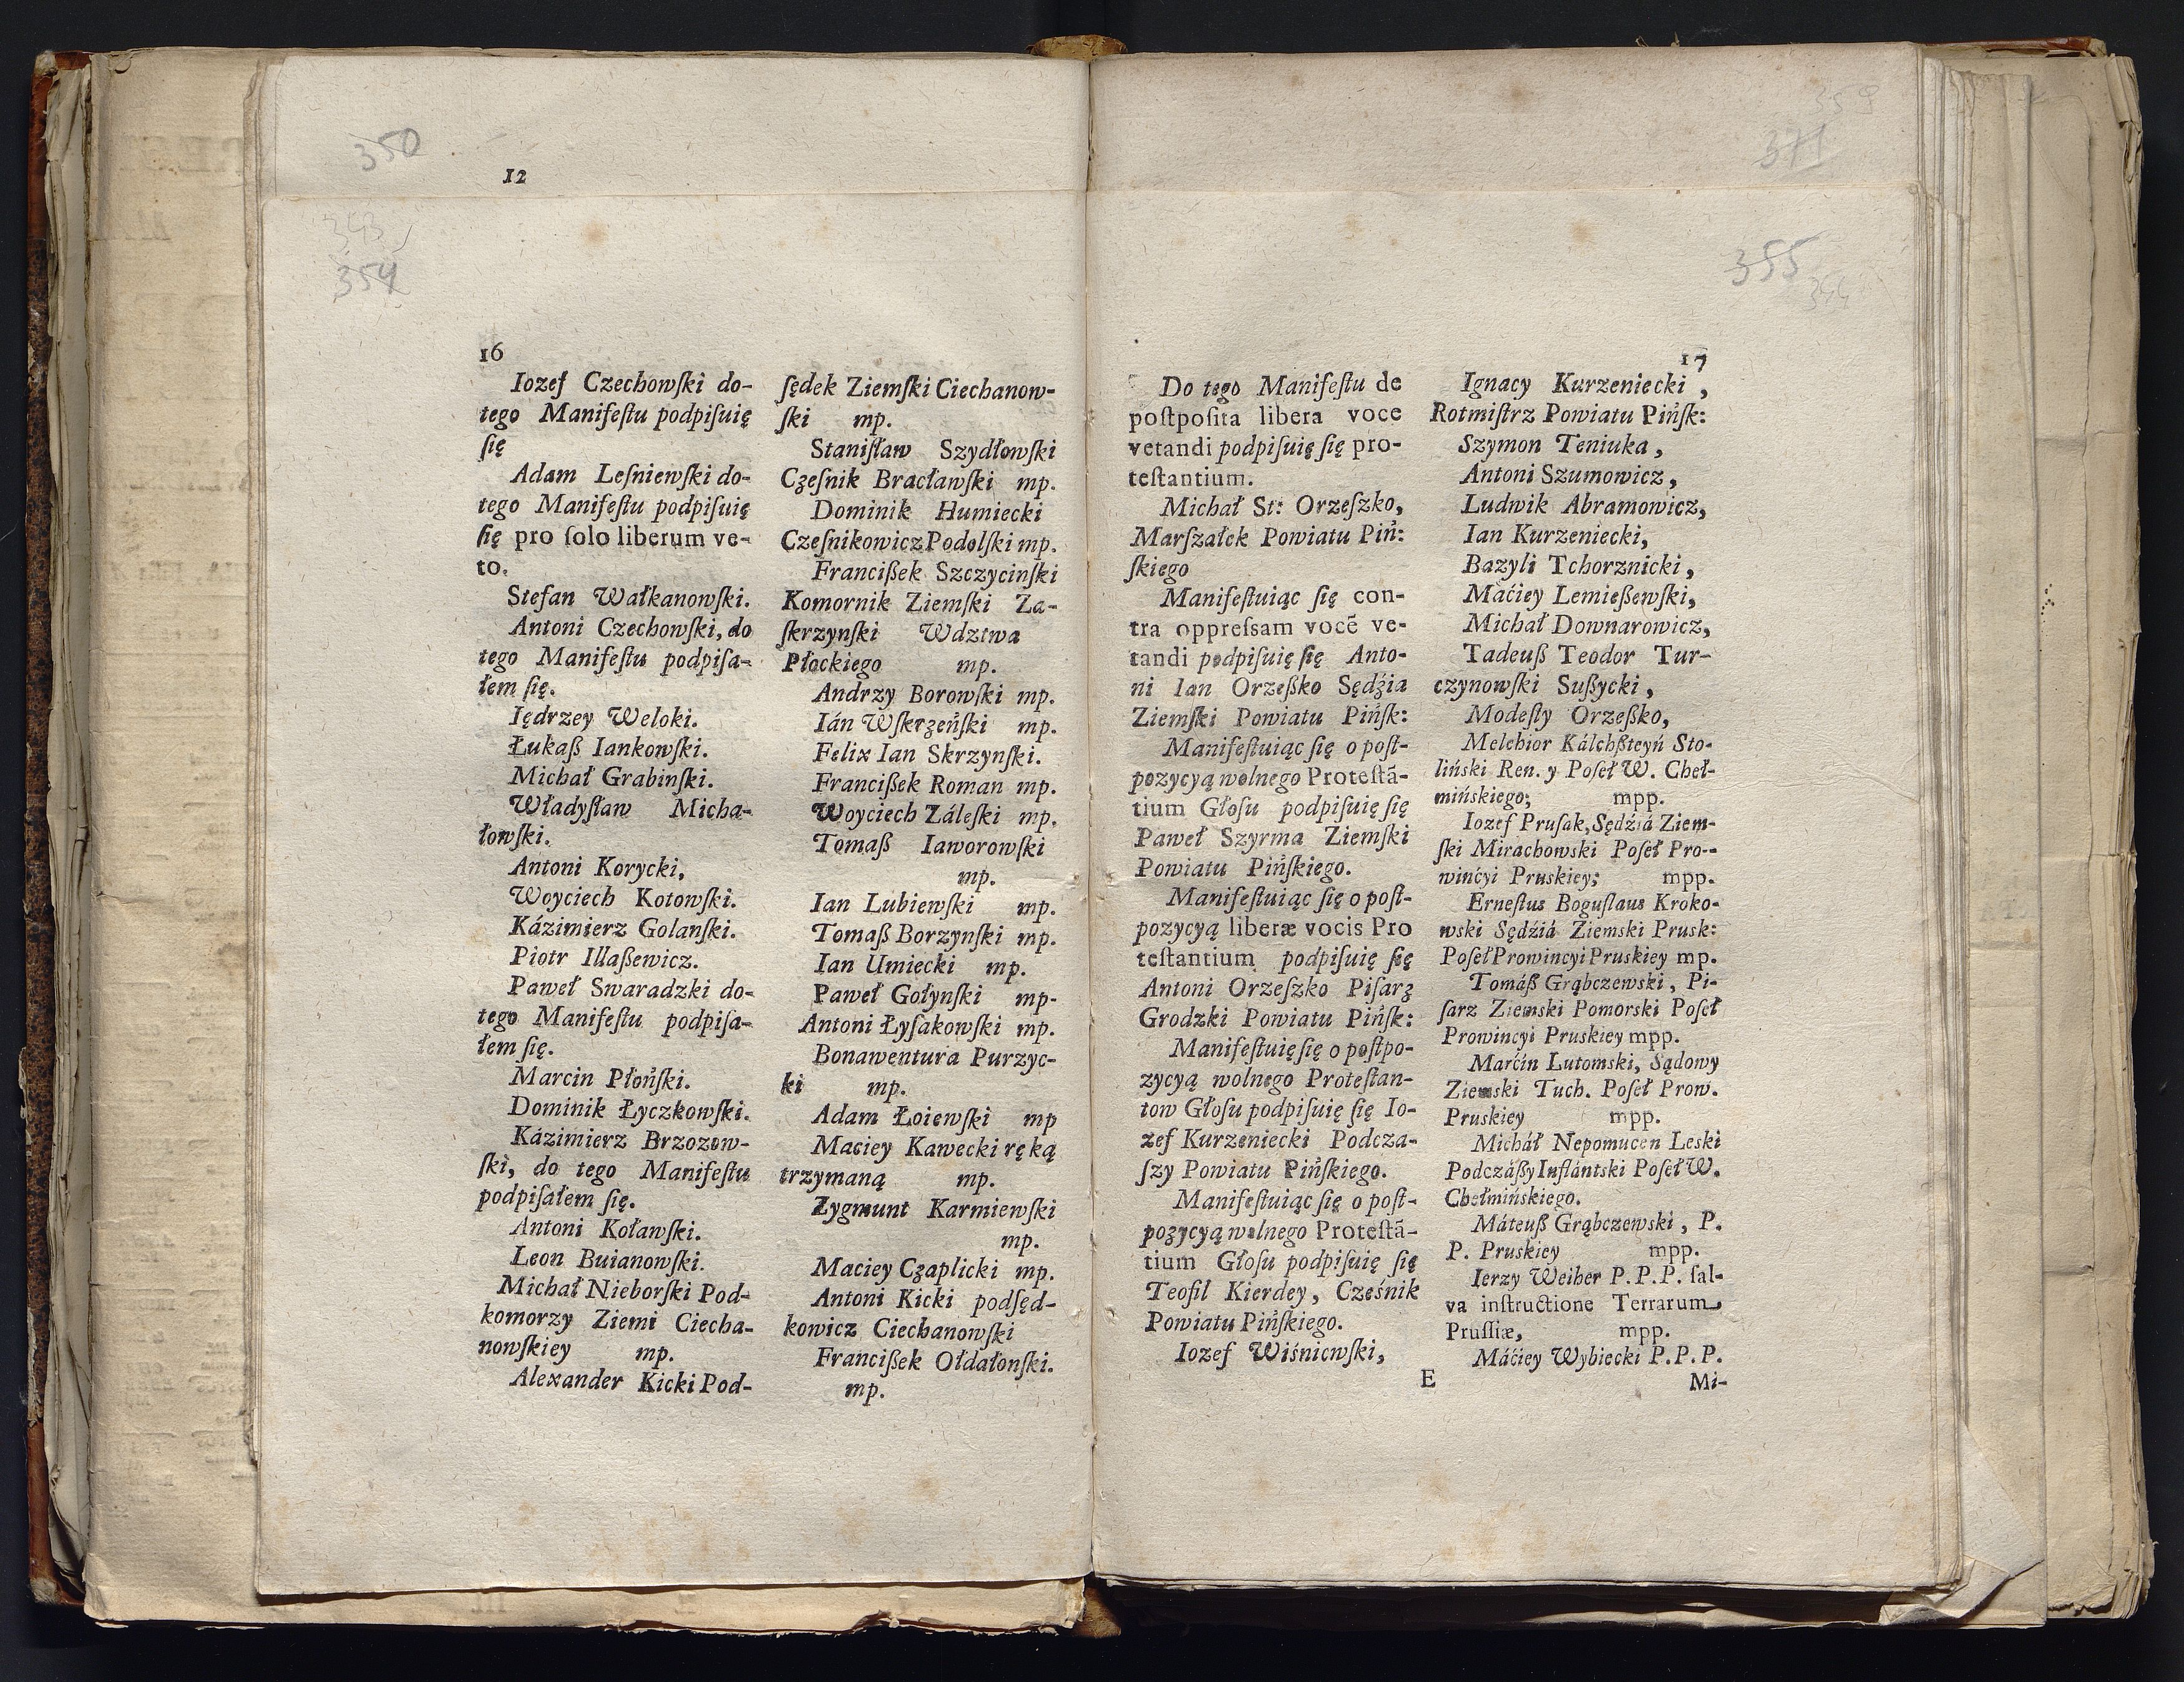 350
12
343
354
16
Iozef Czechowſki do-
tego Manifeſtu podpiſuię
ſię
Adam Leſniewſki do-
tego Manifeſtu podpiſuię
ſię pro ſolo liberum ve-
to.
Stefan Wałkanowſki.
Antoni Czechowſki, do
tego Manifeſtu podpiſa-
łem ſię.
Iędrzey Weloki.
Łukaß Iankowſki.
Michał Grabinſki.
Władyſław Micha-
łowſki.
Antoni Korycki,
Woyciech Kotowſki.
Kázimierz Golanſki.
Piotr Illaßewicz.
Paweł Swaradzki do-
tego Manifeſtu podpiſa-
łem ſię.
Marcin Płońſki.
Dominik Łyczkowſki.
Kázimierz Brzozow-
ſki, do tego Manifeſtu
podpiſałem ſię.
Antoni Koławſki.
Leon Buianowſki.
Michał Nieborſki Pod-
komorzy Ziemi Ciecha-
nowſkiey mp.
Alexander Kicki Pod-
ſędek Ziemſki Ciechanow-
ſki mp.
Staniſław Szydłowſki
Czeſnik Bracławſki mp.
Dominik Humiecki
Czeſnikowicz Podolſki mp.
Francißek Szczycinſki
Komornik Ziemſki Za-
ſkrzynſki Wdztwa
Płockiego mp.
Andrzy Borowſki mp.
Ián Wſkrzeńſki mp.
Felix Ian Skrzynſki.
Francißek Roman mp.
Woyciech Záleſki mp.
Tomaß Iaworowſki
mp.
Ian Lubiewſki mp.
Tomaß Borzynſki mp.
Ian Umiecki mp.
Paweł Gołynſki mp-
Antoni Łyſakowſki mp.
Bonawentura Purzyc-
ki mp.
Adam Łoiewſki mp
Maciey Kawecki ręką
trzymaną mp.
Zygmunt Karmiewſki
mp.
Maciey Czaplicki mp.
Antoni Kicki podſęd-
kowicz Ciechanowſki
Francißek Ołdałonſki.
mp.
359
371
355
17
Do tego Manifeſtu de
poſtpoſita libera voce
vetandi podpiſuię ſię pro-
teſtantium.
Michał St: Orzeſzko,
Marſzałek Powiatu Piń:
ſkiego
Manifeſtuiąc ſię con-
tra oppreſsam vocē ve-
tandi podpiſuię ſię Anto-
ni Ian Orzeßko Sędźia
Ziemſki Powiatu Pińſk:
Manifeſtuiąc ſię o poſt-
pozycyą wolnego Proteſtā-
tium Głoſu podpiſuię ſię
Paweł Szyrma Ziemſki
Powiatu Pińſkiego.
Manifeſtuiąc ſię o poſt-
pozycyą liberæ vocis Pro
teſtantium podpiſuię ſię
Antoni Orzeſzko Piſarz
Grodzki Powiatu Pińſk:
Manifeſtuię ſię o poſtpo-
zycyą wolnego Proteſtan-
tow Głoſu podpiſuię ſię Io-
zef Kurzeniecki Podcza-
ſzy Powiatu Pińſkiego.
Manifeſtuiąc ſię o poſt-
pozycyą wolnego Proteſtā-
tium Głoſu podpiſuię ſię
Teofil Kierdey, Cześnik
Powiatu Pińſkiego.
Iozef Wiśniewſki,
Ignacy Kurzeniecki,
Rotmiſtrz Powiatu Pińſk:
Szymon Teniuka,
Antoni Szumowicz,
Ludwik Abramowicz,
Ian Kurzeniecki,
Bazyli Tchorznicki,
Máćiey Lemießewſki,
Michał Downarowicz,
Tadeuß Teodor Tur-
czynowſki Sußycki,
Modeſty Orzeßko,
Melchior Kálchßteyń Sto-
liński Ren. y Poſeł W. Cheł-
mińskiego; mpp.
Iozef Pruſak, Sędźiá Ziem-
ſki Mirachowski Poſeł Pro--
winćyi Pruskiey; mpp.
Erneſtus Boguſlaus Kroko-
wski Sędźiá Ziemski Prusk:
Poſeł Prowincyi Pruskiey mp.
Tomáß Grąbczewski, Pi-
ſarz Ziemski Pomorski Poſeł
Prowincyi Pruskiey mpp.
Marćin Lutomski, Sądowy
Ziemski Tuch. Poſeł Prow.
Pruskiey mpp.
Micháł Nepomucen Leski
Podczáßy Inflántski Poſeł W.
Chełmińskiego.
Máteuß Grąbczewski, P.
P. Pruskiey mpp.
Ierzy Weiher P. P. P. ſal-
va inſtructione Terrarum
Pruſſiæ, mpp.
Máćiey Wybiecki P. P. P.
E
Mi-